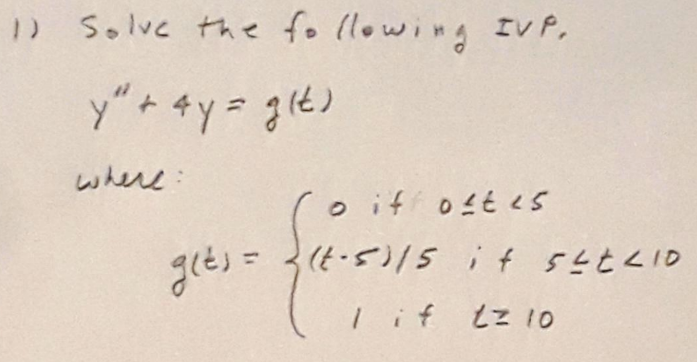 1) Solve the following IVP.
y" + 4y = g(t)
where:
0 if 0≤t<5
g(t) = { (t-5)/5 if 5≤t<10
1 if t≥10